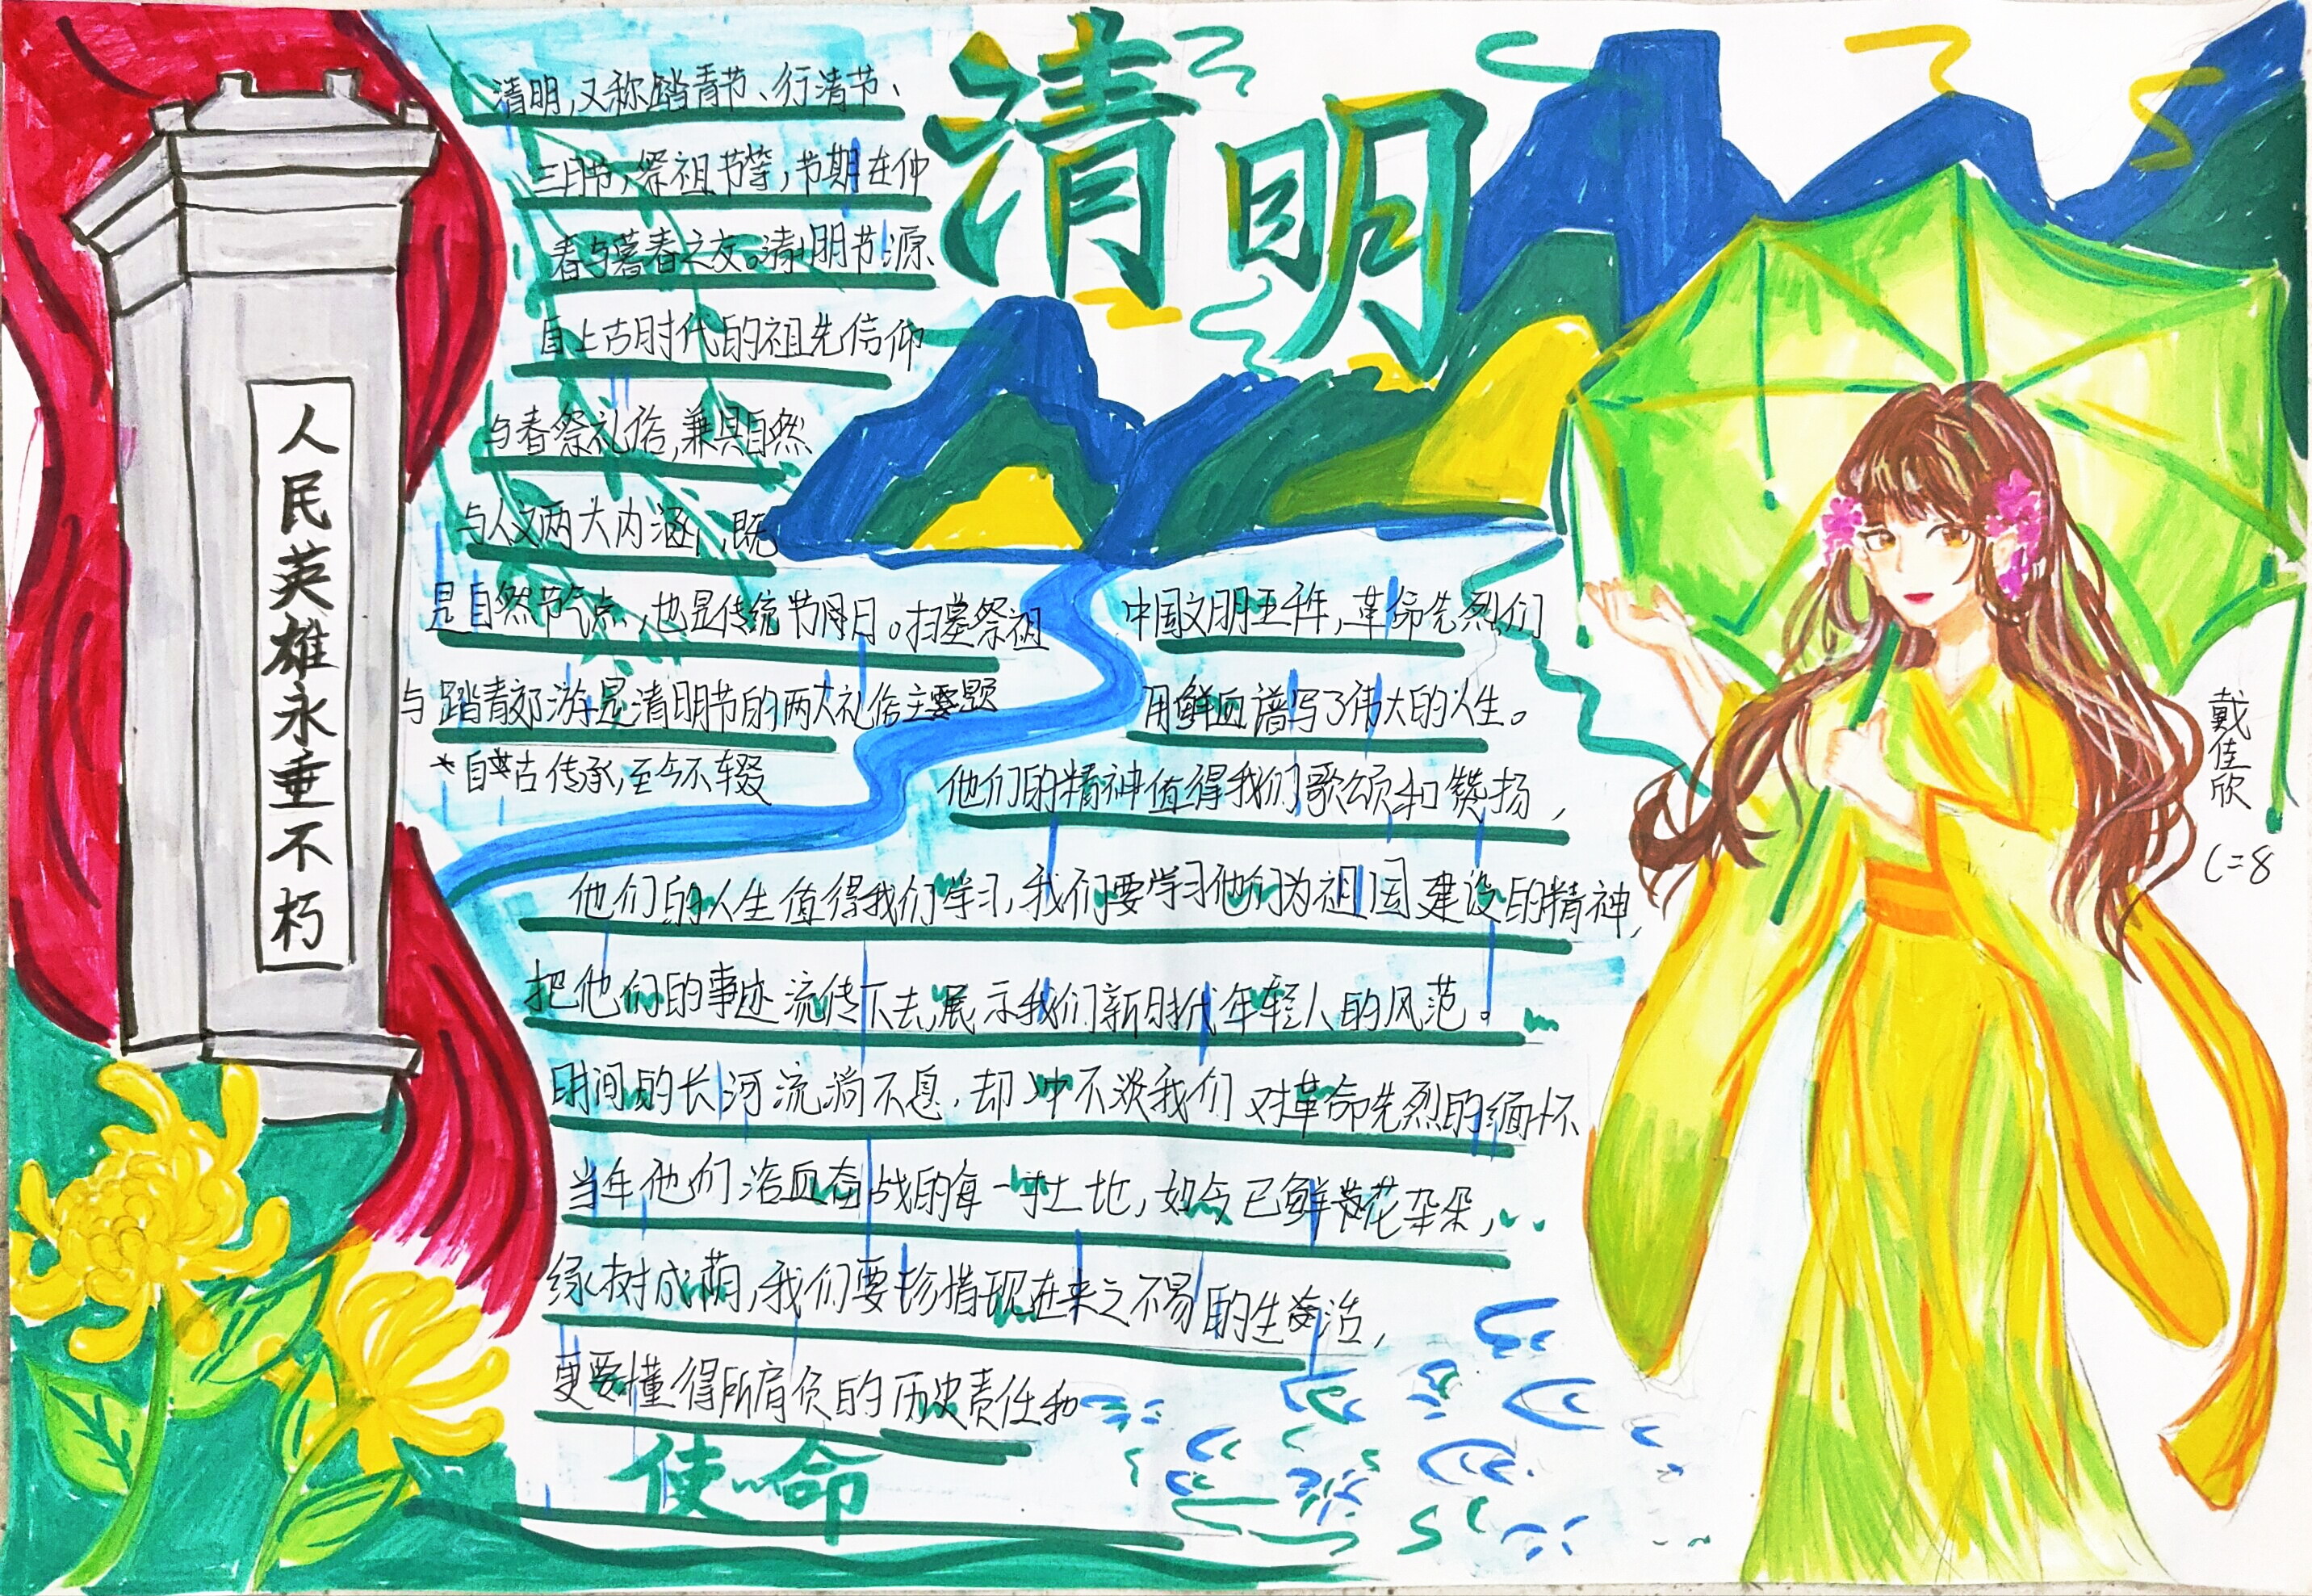 清明
人民英雄永垂不朽
清明,又称踏青节、行清节、
三月节,祭祖节等,节期在仲
春与暮春之交。清明节源
自上古时代的祖先信仰
与春祭礼俗,兼具自然
与人文两大内涵,既
是自然节气点,也是传统节日。扫墓祭祖
与踏青郊游是清明节的两大礼俗主题
*自古传承,至今不辍
中国文明五千年,革命先烈们
用鲜血谱写了伟大的人生。
他们的精神值得我们歌颂和赞扬,
他们的人生值得我们学习,我们要学习他们为祖国建设的精神,
把他们的事迹流传下去,展示我们新时代年轻人的风范。
时间的长河流淌不息,却冲不淡我们对革命先烈的缅怀
当年他们浴血奋战的每一寸土地,如今已鲜花朵朵,
绿树成荫,我们要珍惜现在来之不易的生活,
更要懂得所肩负的历史责任和
使命
戴佳欣
(=8